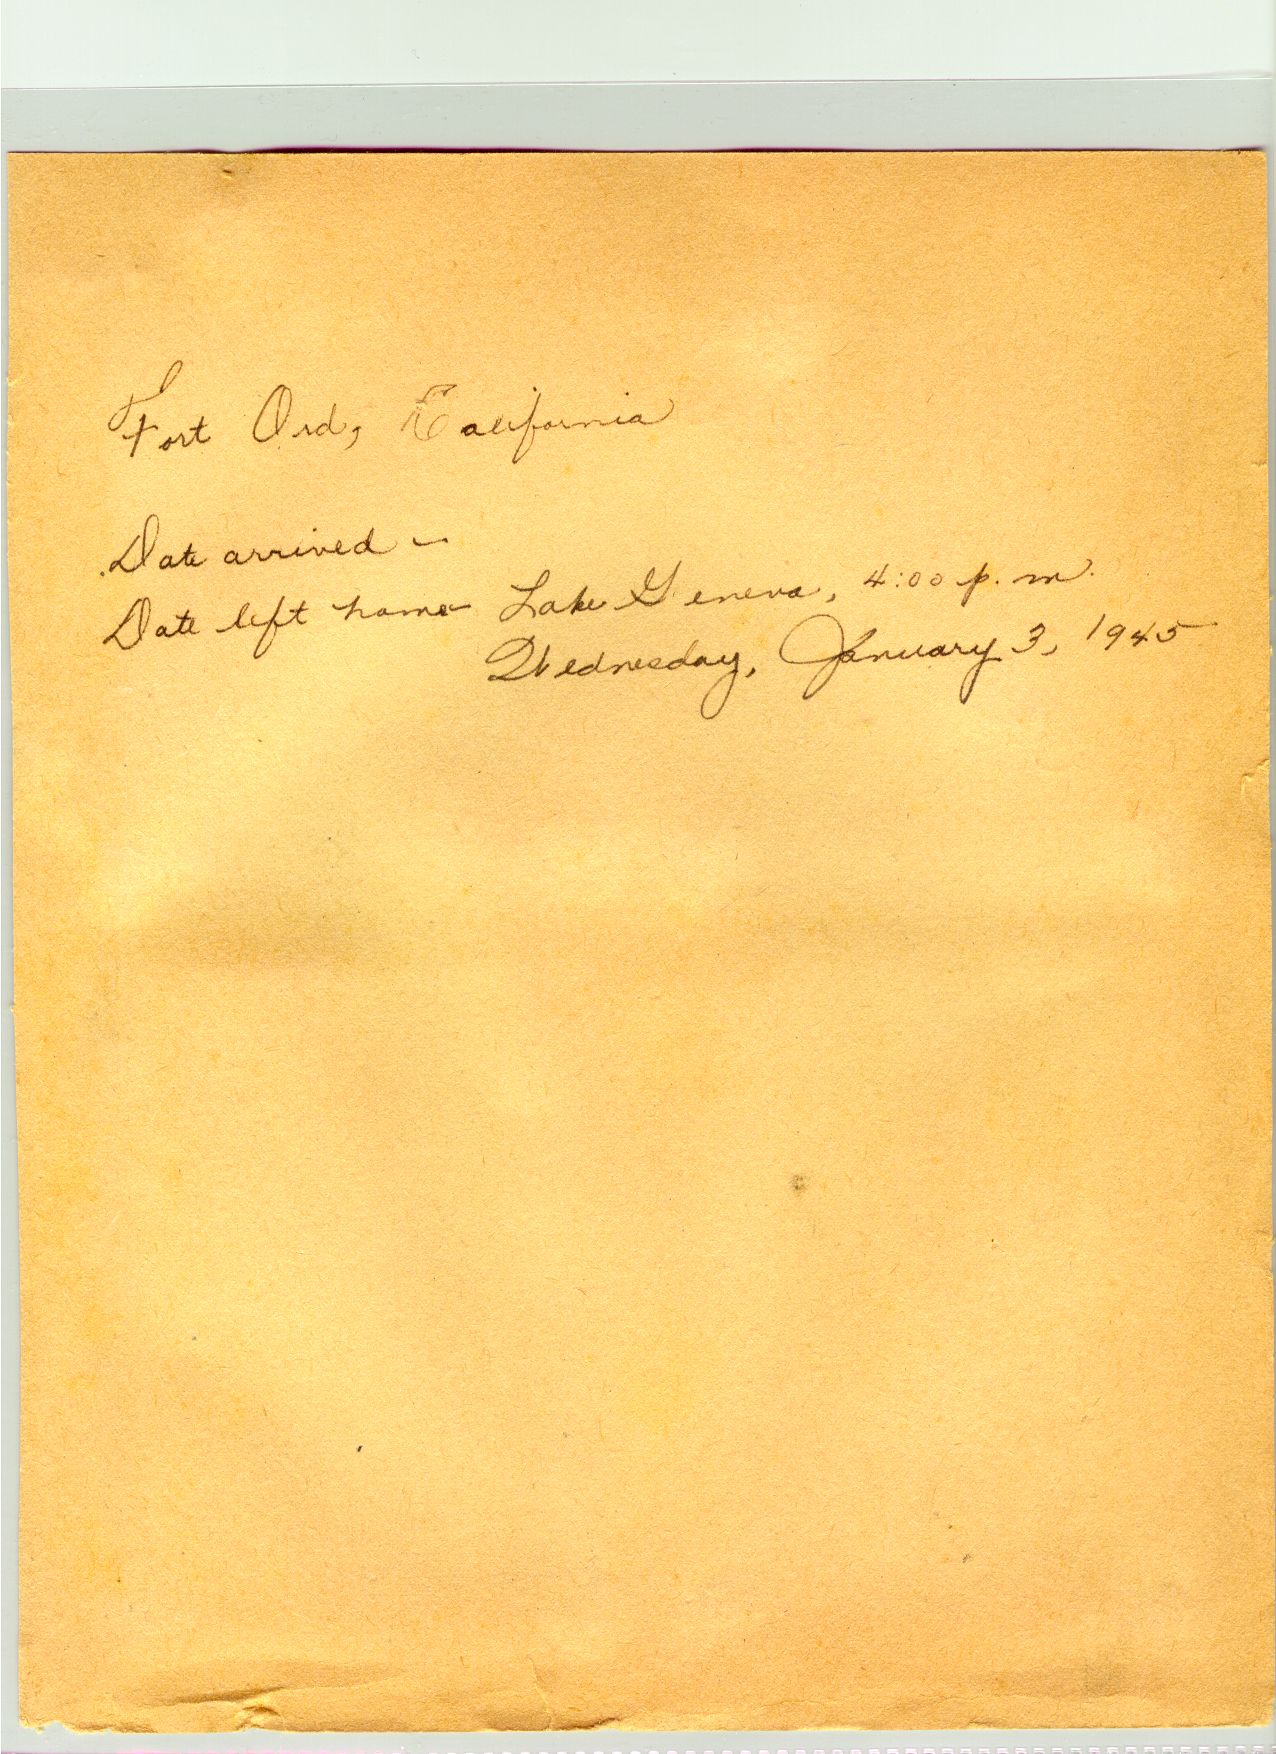 Fort Ord, California
Date arrived -
Date left home - Lake Geneva, 4:00 p.m.
Wednesday, January 3, 1945